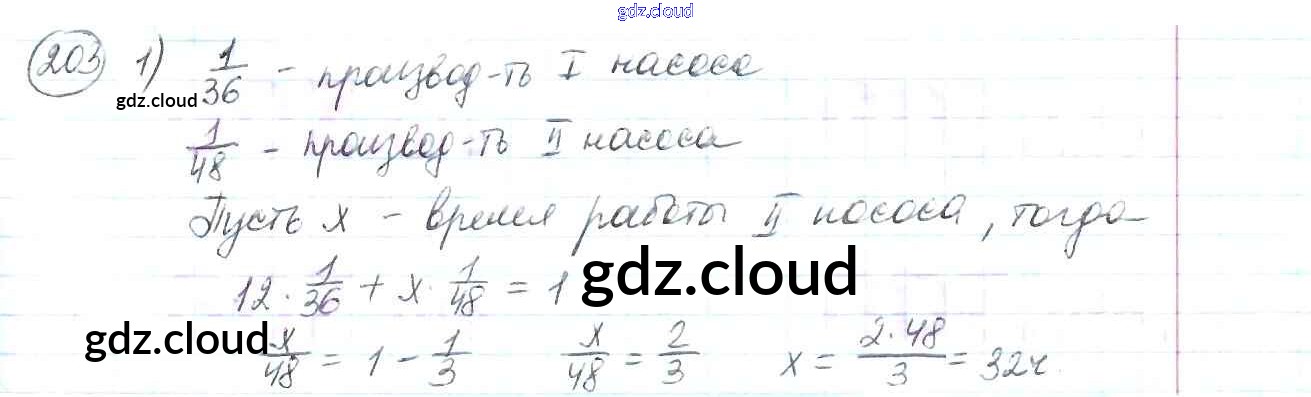 gdz.cloud
203 1) 1/36 - производ-ть I насоса
gdz.cloud
1/48 - производ-ть II насоса
Пусть x - время работы II насоса, тогда
12 · 1/36 + x · 1/48 = 1
gdz.cloud
gdz.cloud
x/48 = 1 - 1/3 x/48 = 2/3 x = 2·48/3 = 32ч.